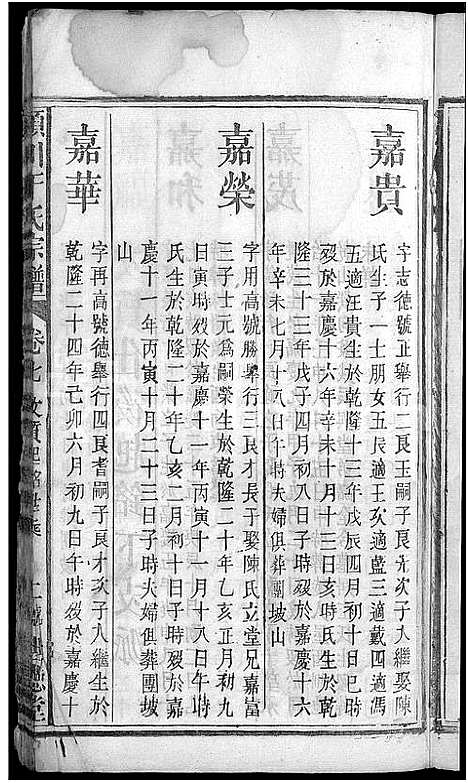 嘉貴
字志德號正舉行二良玉嗣子良先次子入繼娶陳
氏生子一士朋女五長適王次適藍三適戴四適馮
五適汪貴生於乾隆十三年戊辰四月初十日巳時
歿於嘉慶十六年辛未十月十三日亥時氏生於乾
隆三十三年戊子四月初八日子時歿於嘉慶十六
年辛未七月十八日午時夫婦俱葬團坡山
嘉榮
字用高號勝舉行三良才長子娶陳氏立堂兄嘉富
三子士元為嗣榮生於乾隆二十年乙亥正月初九
日寅時歿於嘉慶十一年丙寅十一月十八日午時
氏生於乾隆二十年乙亥二月初十日子時歿於嘉
慶十一年丙寅十月二十三日子時夫婦俱葬團坡
山
嘉華
字再高號德舉行四良耆嗣子良才次子入繼生於
乾隆二十四年己卯六月初九日午時歿於嘉慶十
川 氏宗譜
卷七